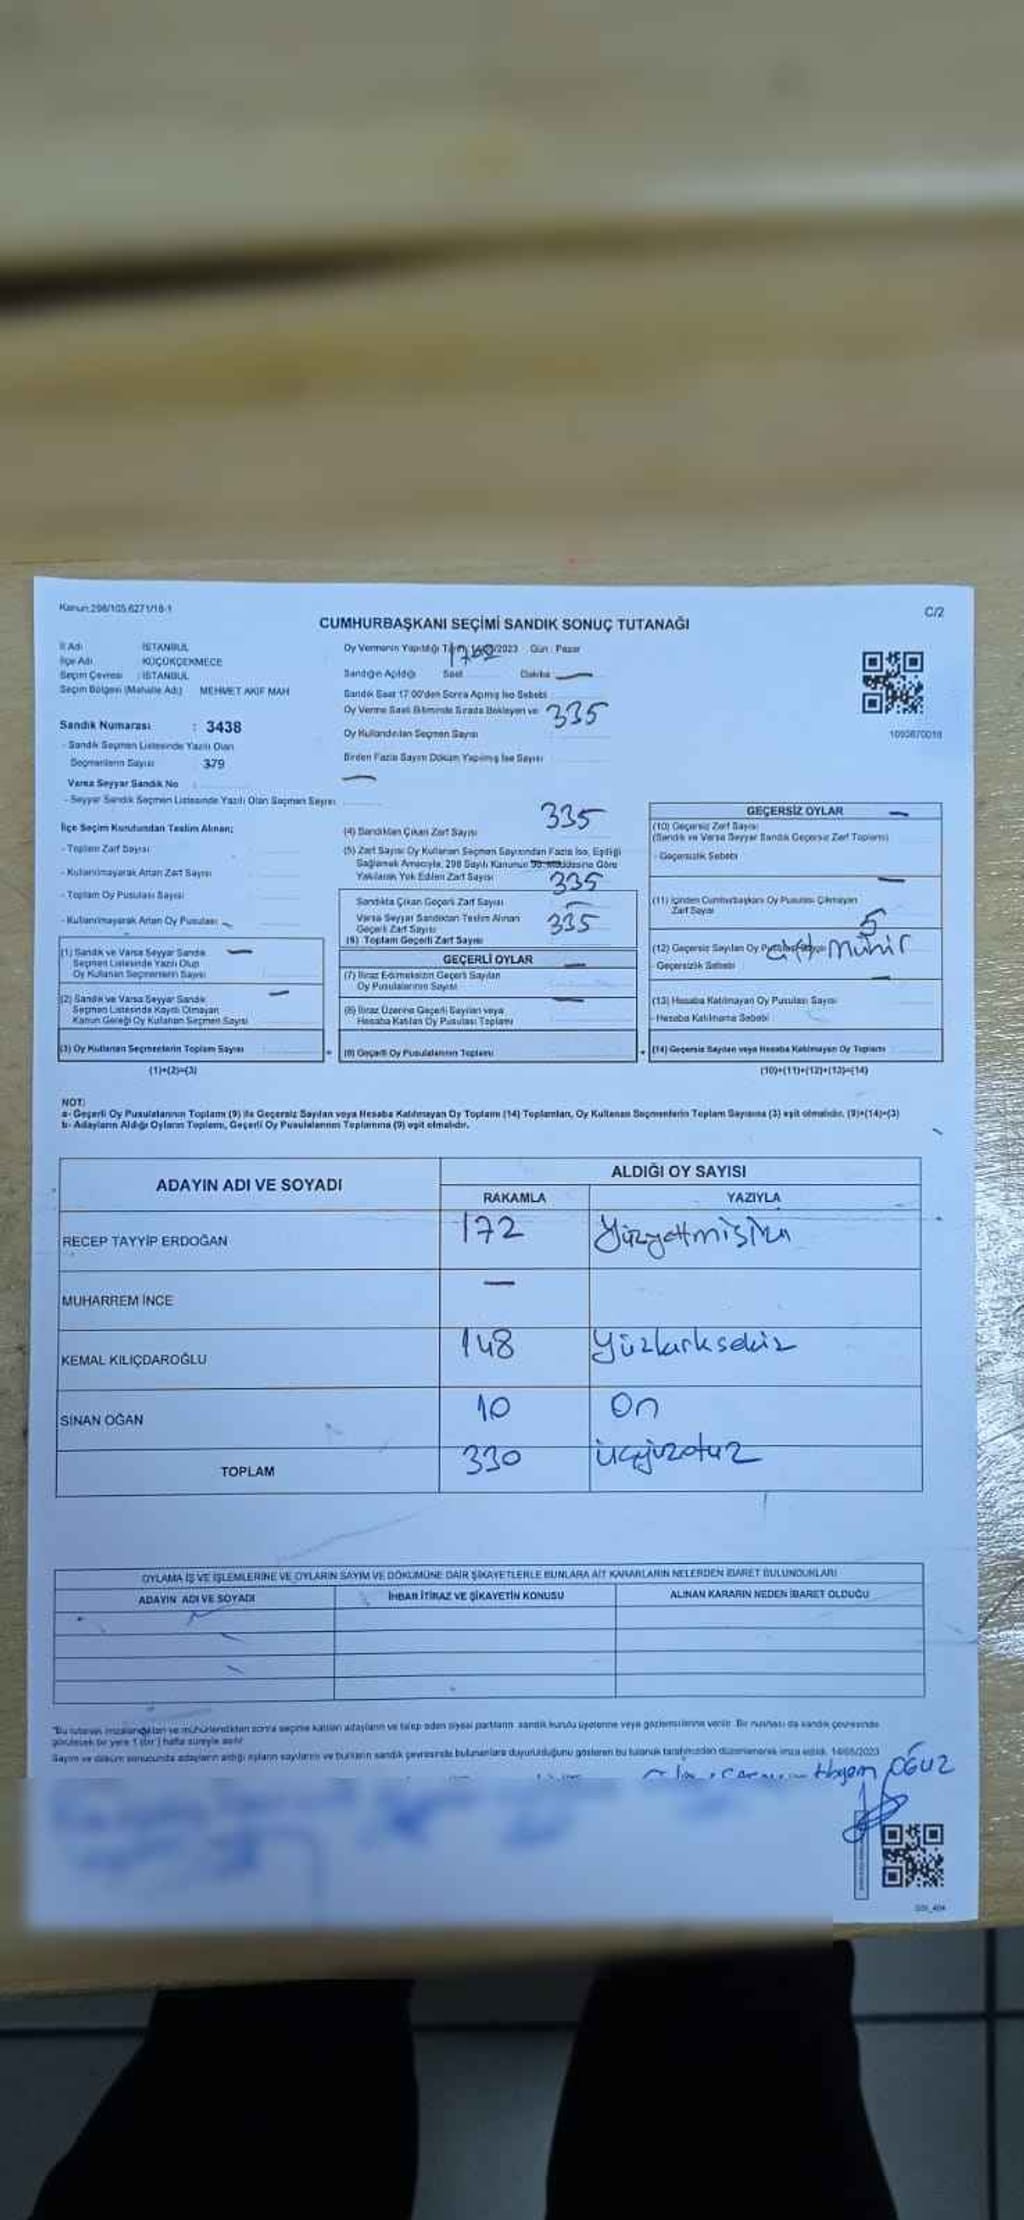 Kanun:298/105,6271/18-1
C/2
CUMHURBAŞKANI SEÇİMİ SANDIK SONUÇ TUTANAĞI
İl Adı : İSTANBUL
İlçe Adı : KÜÇÜKÇEKMECE
Seçim Çevresi : İSTANBUL
Seçim Bölgesi (Mahalle Adı) MEHMET AKİF MAH
Sandık Numarası : 3438
- Sandık Seçmen Listesinde Yazılı Olan
Seçmenlerin Sayısı 379
Varsa Seyyar Sandık No
- Seyyar Sandık Seçmen Listesinde Yazılı Olan Seçmen Sayısı
İlçe Seçim Kurulundan Teslim Alınan;
- Toplam Zarf Sayısı
- Kullanılmayarak Artan Zarf Sayısı
- Toplam Oy Pusulası Sayısı
- Kullanılmayarak Artan Oy Pusulası
(1) Sandık ve Varsa Seyyar Sandık
Seçmen Listesinde Yazılı Olup
Oy Kullanan Seçmenlerin Sayısı
(2) Sandık ve Varsa Seyyar Sandık
Seçmen Listesinde Kayıtlı Olmayan
Kanun Gereği Oy Kullanan Seçmen Sayısı
(3) Oy Kullanan Seçmenlerin Toplam Sayısı
(1)+(2)=(3)
Oy Vermenin Yapıldığı 2023 Gün : Pazar
Sandığın Açıldığı Saat Dakika
Sandık Saat 17 00'den Sonra Açımış İse Sebebi
Oy Verme Saati Bitiminde Sırada Bekleyen ve 335
Oy Kullandırılan Seçmen Sayısı
Birden Fazla Sayım Döküm Yapılmış İse Sayısı
335
(4) Sandıktan Çıkan Zarf Sayısı
(5) Zarf Sayısı Oy Kullanan Seçmen Sayısından Fazla İse, Eşitliği
Sağlamak Amacıyla, 298 Sayılı Kanunun Maddesine Göre
Yakılarak Yok Edilen Zarf Sayısı 335
Sandıkta Çıkan Geçerli Zarf Sayısı
Varsa Seyyar Sandıktan Teslim Alınan
Geçerli Zarf Sayısı 335
(6) Toplam Geçerli Zarf Sayısı
GEÇERLİ OYLAR
(7) İtiraz Edilmeksizin Geçerli Sayılan
Oy Pusulalarının Sayısı
(8) İtiraz Üzerine Geçerli Sayılan veya
Hesaba Katılan Oy Pusulası Toplamı
(9) Geçerli Oy Pusulalarının Toplamı
1093870018
GEÇERSİZ OYLAR
(10) Geçersiz Zarf Sayısı
(Sandık ve Varsa Seyyar Sandık Geçersiz Zarf Toplamı)
- Geçersizlik Sebebi
(11) İçinden Cumhurbaşkanı Oy Pusulası Çıkmayan
Zarf Sayısı
5
(12) Geçersiz Sayılan Oy
- Geçersizlik Sebebi
(13) Hesaba Katılmayan Oy Pusulası Sayısı
- Hesaba Katılmama Sebebi
(14) Geçersiz Sayılan veya Hesaba Katılmayan Oy Toplamı
(10)+(11)+(12)+(13)=(14)
NOT:
a- Geçerli Oy Pusulalarının Toplamı (9) ile Geçersiz Sayılan veya Hesaba Katılmayan Oy Toplamı (14) Toplamları, Oy Kullanan Seçmenlerin Toplam Sayısına (3) eşit olmalıdır. (9)+(14)=(3)
b- Adayların Aldığı Oyların Toplamı, Geçerli Oy Pusulalarının Toplamına (9) eşit olmalıdır.
ADAYIN ADI VE SOYADI ALDIĞI OY SAYISI
RAKAMLA YAZIYLA
RECEP TAYYİP ERDOĞAN 172 Yüzyetmişiki
MUHARREM İNCE
KEMAL KILIÇDAROĞLU 148 Yüzkırksekiz
SİNAN OĞAN 10 On
TOPLAM 330 üçyüzotuz
OYLAMA İŞ VE İŞLEMLERİNE VE OYLARIN SAYIM VE DÖKÜMÜNE DAİR ŞİKAYETLERLE BUNLARA AİT KARARLARIN NELERDEN İBARET BULUNDUKLARI
ADAYIN ADI VE SOYADI İHBAR İTİRAZ VE ŞİKAYETİN KONUSU ALINAN KARARIN NEDEN İBARET OLDUĞU
"Bu tutanak imzalandıktan ve mühürlendikten sonra seçime katılan adayların ve talep eden siyasi partilerin sandık kurulu üyelerine veya gözlemcilerine verilir. Bir nüshası da sandık çevresinde
görülecek bir yere 1 (bir) hafta süreyle asılır
Sayım ve döküm sonucunda adayların aldığı oyların sayılarını ve bunların sandık çevresinde bulunanlara duyurulduğunu gösteren bu tutanak tarafımızdan düzenlenerek imza edildi. 14/05/2023
OĞUZ